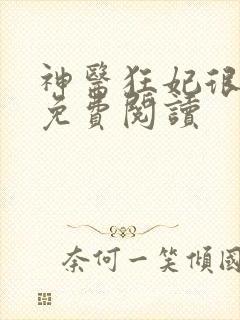 神醫狂妃很
免費閱讀
奈何一笑傾國